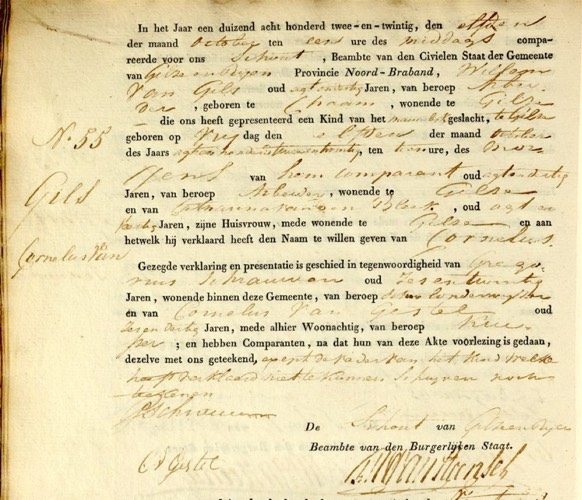 In het Jaar een duizend acht honderd twee-en-twintig, den elfden
der maand october ten een ure des middags compa-
reerde voor ons Schout, Beambte van den Civielen Staat der Gemeente
van Gilze en Reijen Provincie Noord-Braband, Willem
Van Gils oud agtendertig Jaren, van beroep
, geboren te Chaam, wonende te Gilze
die ons heeft gepresenteerd een Kind van het geslacht, te Gilze
geboren op Vrydag den elfden der maand october
des Jaars ten ure, des mor
N.o 55
gens van hem comparant oud agtendertig
Jaren, van beroep , wonende te Gilze
en van , oud agt en
Jaren, zijne Huisvrouw, mede wonende te Gilze en aan
hetwelk hij verklaard heeft den Naam te willen geven van Cornelus
Gils
Cornelus Van
Gezegde verklaring en presentatie is geschied in tegenwoordigheid van Grego-
rius Schrauwen oud zesentwintig
Jaren, wonende binnen deze Gemeente, van beroep
en van Cornelus Van Gestel oud
zesendertig Jaren, mede alhier Woonachtig, van beroep Kui
per; en hebben Comparanten, na dat hun van deze Akte voorlezing is gedaan,
dezelve met ons geteekend, de vader van het Kind welke
heeft verklaard niet te kunnen schryven noch
teekenen
GSchrauwen
De Schout van
Beambte van den Burgerlijken Staat.
CVGestel